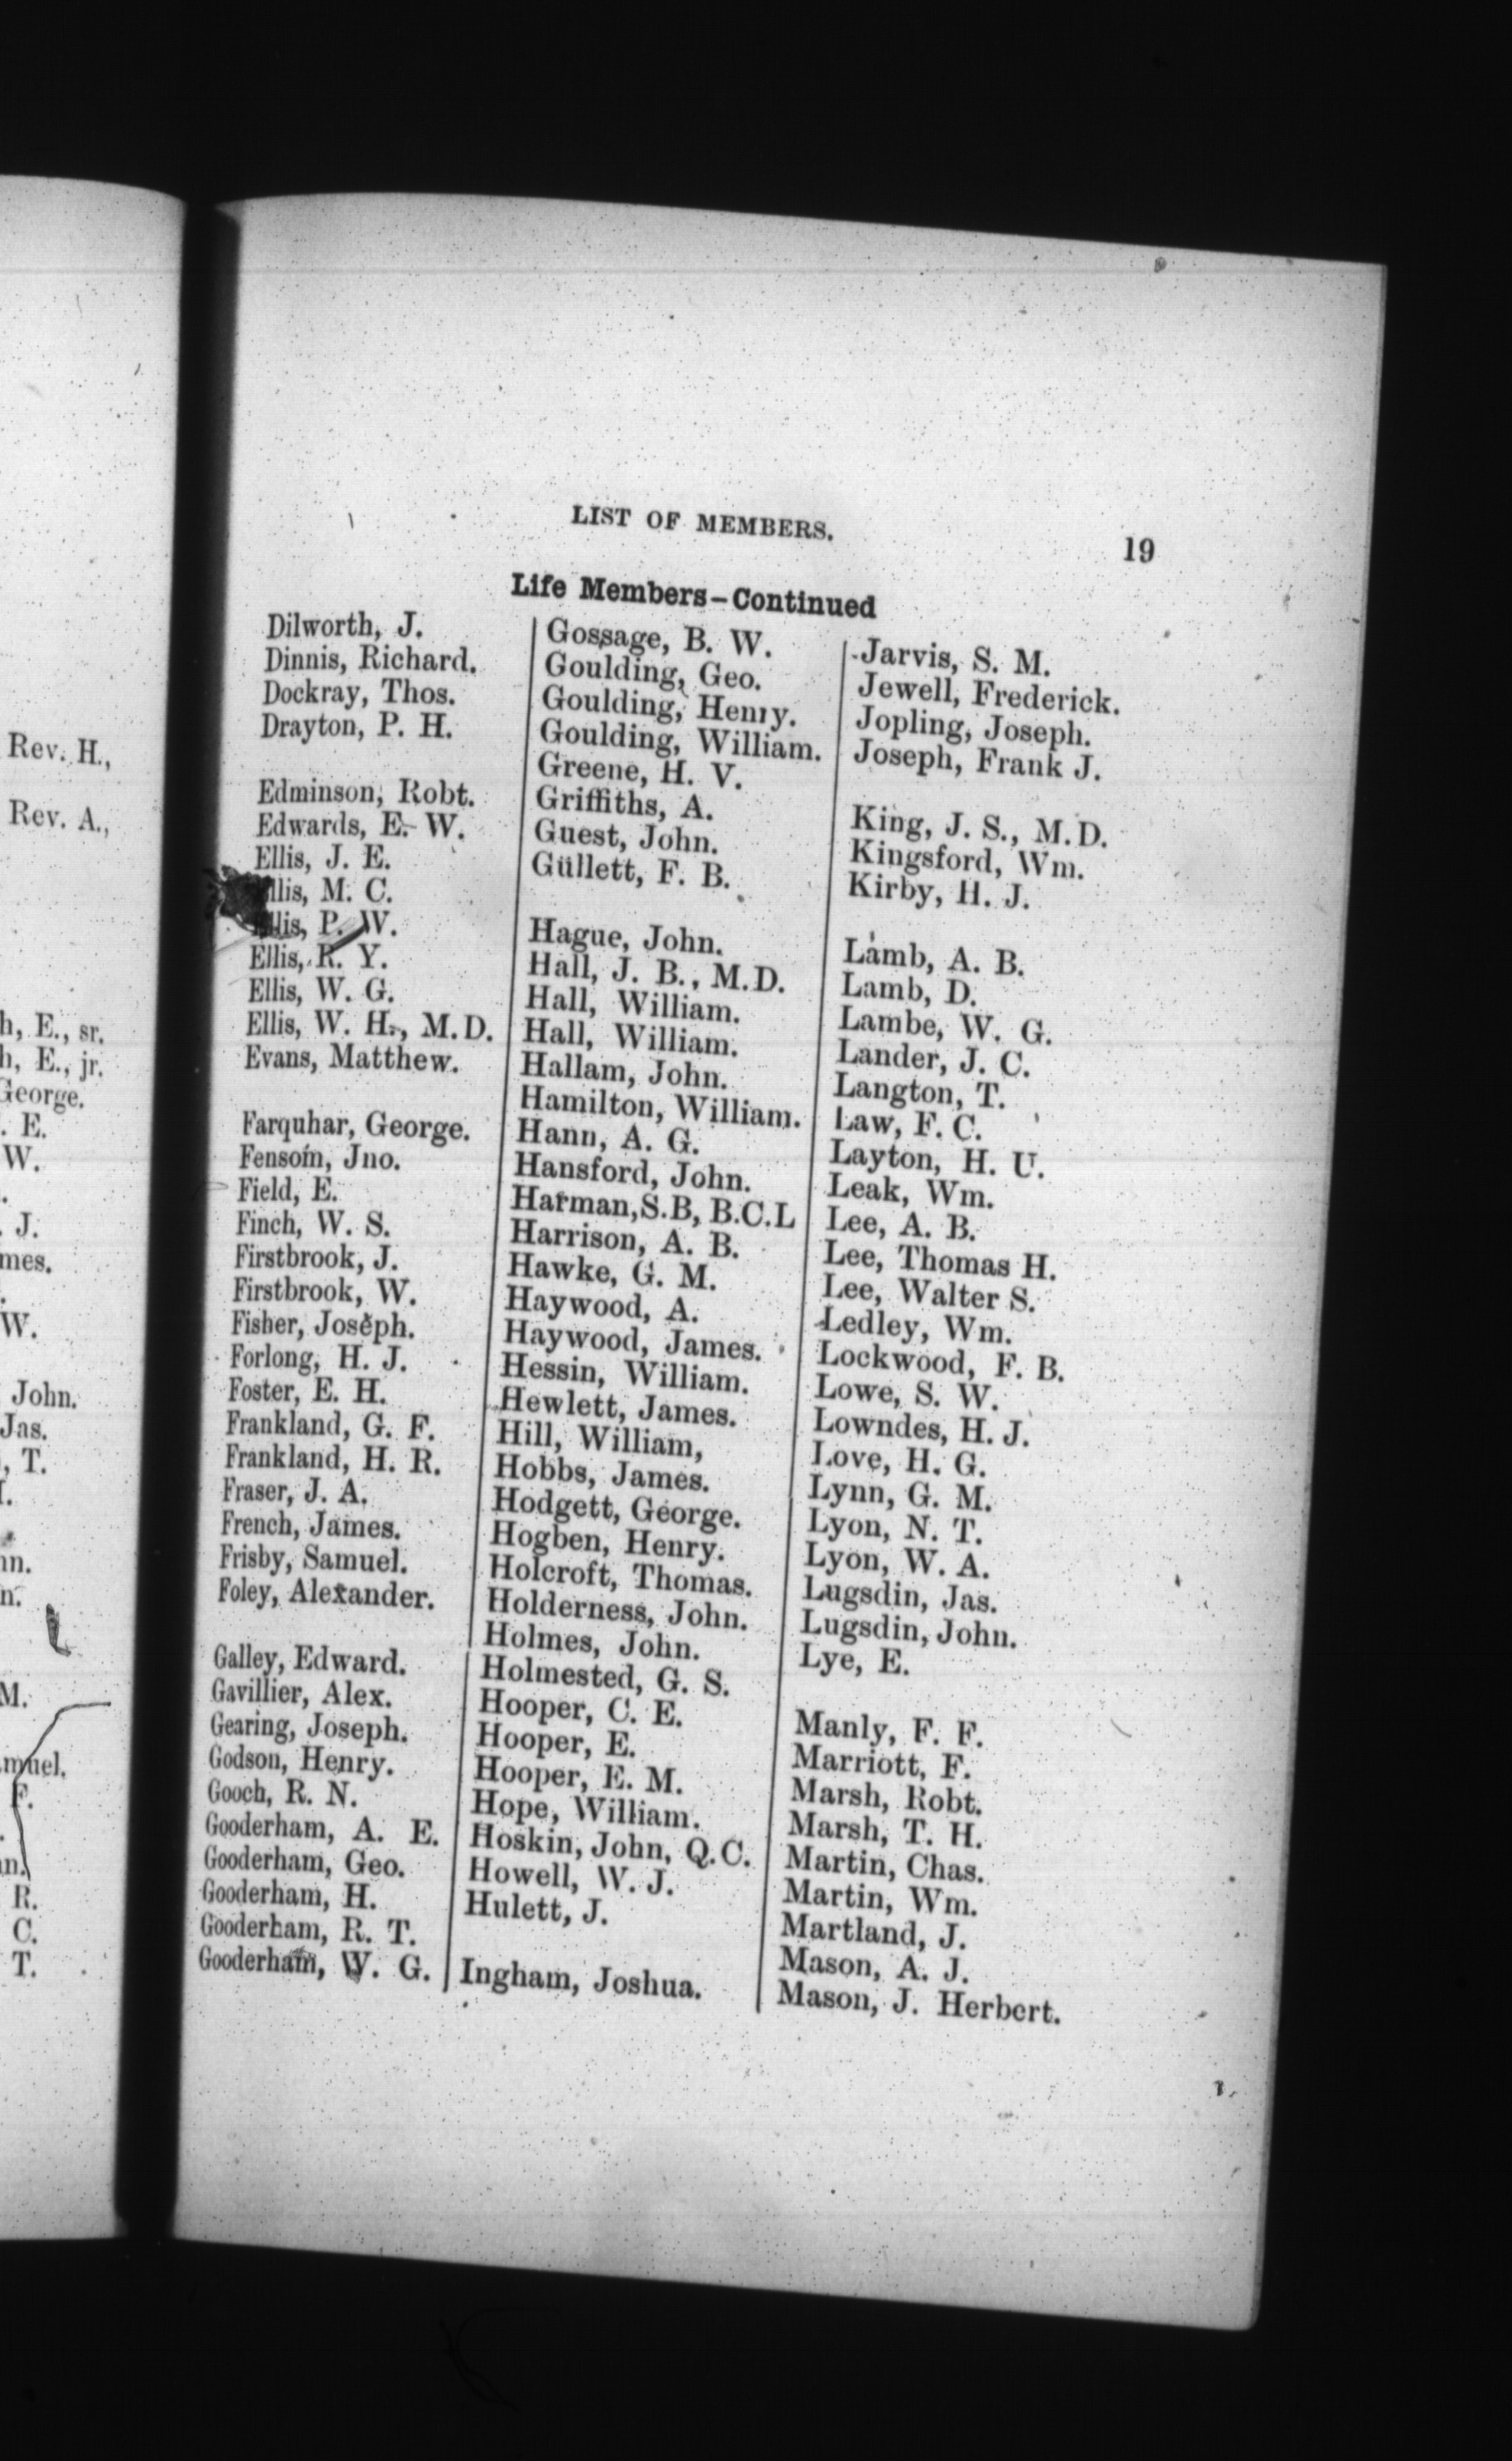 Rev. H.,
Rev. A.,
E., sr.
E., jr.
George.
E.
W.
J.
W.
John.
Jas.
T.
M.
F.
R.
C.
T.
LIST OF MEMBERS.
19
Life Members-Continued
Dilworth, J.
Dinnis, Richard.
Dockray, Thos.
Drayton, P. H.
Edminson, Robt.
Edwards, E. W.
Ellis, J. E.
Ellis, M. C.
Ellis, P. W.
Ellis, R. Y.
Ellis, W. G.
Ellis, W. H., M.D.
Evans, Matthew.
Farquhar, George.
Fensom, Jno.
Field, E.
Finch, W. S.
Firstbrook, J.
Firstbrook, W.
Fisher, Joseph.
Forlong, H. J.
Foster, E. H.
Frankland, G. F.
Frankland, H. R.
Fraser, J. A.
French, James.
Frisby, Samuel.
Foley, Alexander.
Galley, Edward.
Gavillier, Alex.
Gearing, Joseph.
Godson, Henry.
Gooch, R. N.
Gooderham, A. E.
Gooderham, Geo.
Gooderham, H.
Gooderham, R. T.
Gooderham, W. G.
Gossage, B. W.
Goulding, Geo.
Goulding, Henry.
Goulding, William.
Greene, H. V.
Griffiths, A.
Guest, John.
Gullett, F. B.
Hague, John.
Hall, J. B., M.D.
Hall, William.
Hall, William.
Hallam, John.
Hamilton, William.
Hann, A. G.
Hansford, John.
Harman,S.B, B.C.L
Harrison, A. B.
Hawke, G. M.
Haywood, A.
Haywood, James.
Hessin, William.
Hewlett, James.
Hill, William,
Hobbs, James.
Hodgett, George.
Hogben, Henry.
Holcroft, Thomas.
Holderness, John.
Holmes, John.
Holmested, G. S.
Hooper, C. E.
Hooper, E.
Hooper, E. M.
Hope, William.
Hoskin, John, Q.C.
Howell, W. J.
Hulett, J.
Ingham, Joshua.
Jarvis, S. M.
Jewell, Frederick.
Jopling, Joseph.
Joseph, Frank J.
King, J. S., M.D.
Kingsford, Wm.
Kirby, H. J.
Lamb, A. B.
Lamb, D.
Lambe, W. G.
Lander, J. C.
Langton, T.
Law, F. C.
Layton, H. U.
Leak, Wm.
Lee, A. B.
Lee, Thomas H.
Lee, Walter S.
Ledley, Wm.
Lockwood, F. B.
Lowe, S. W.
Lowndes, H. J.
Love, H. G.
Lynn, G. M.
Lyon, N. T.
Lyon, W. A.
Lugsdin, Jas.
Lugsdin, John.
Lye, E.
Manly, F. F.
Marriott, F.
Marsh, Robt.
Marsh, T. H.
Martin, Chas.
Martin, Wm.
Martland, J.
Mason, A. J.
Mason, J. Herbert.